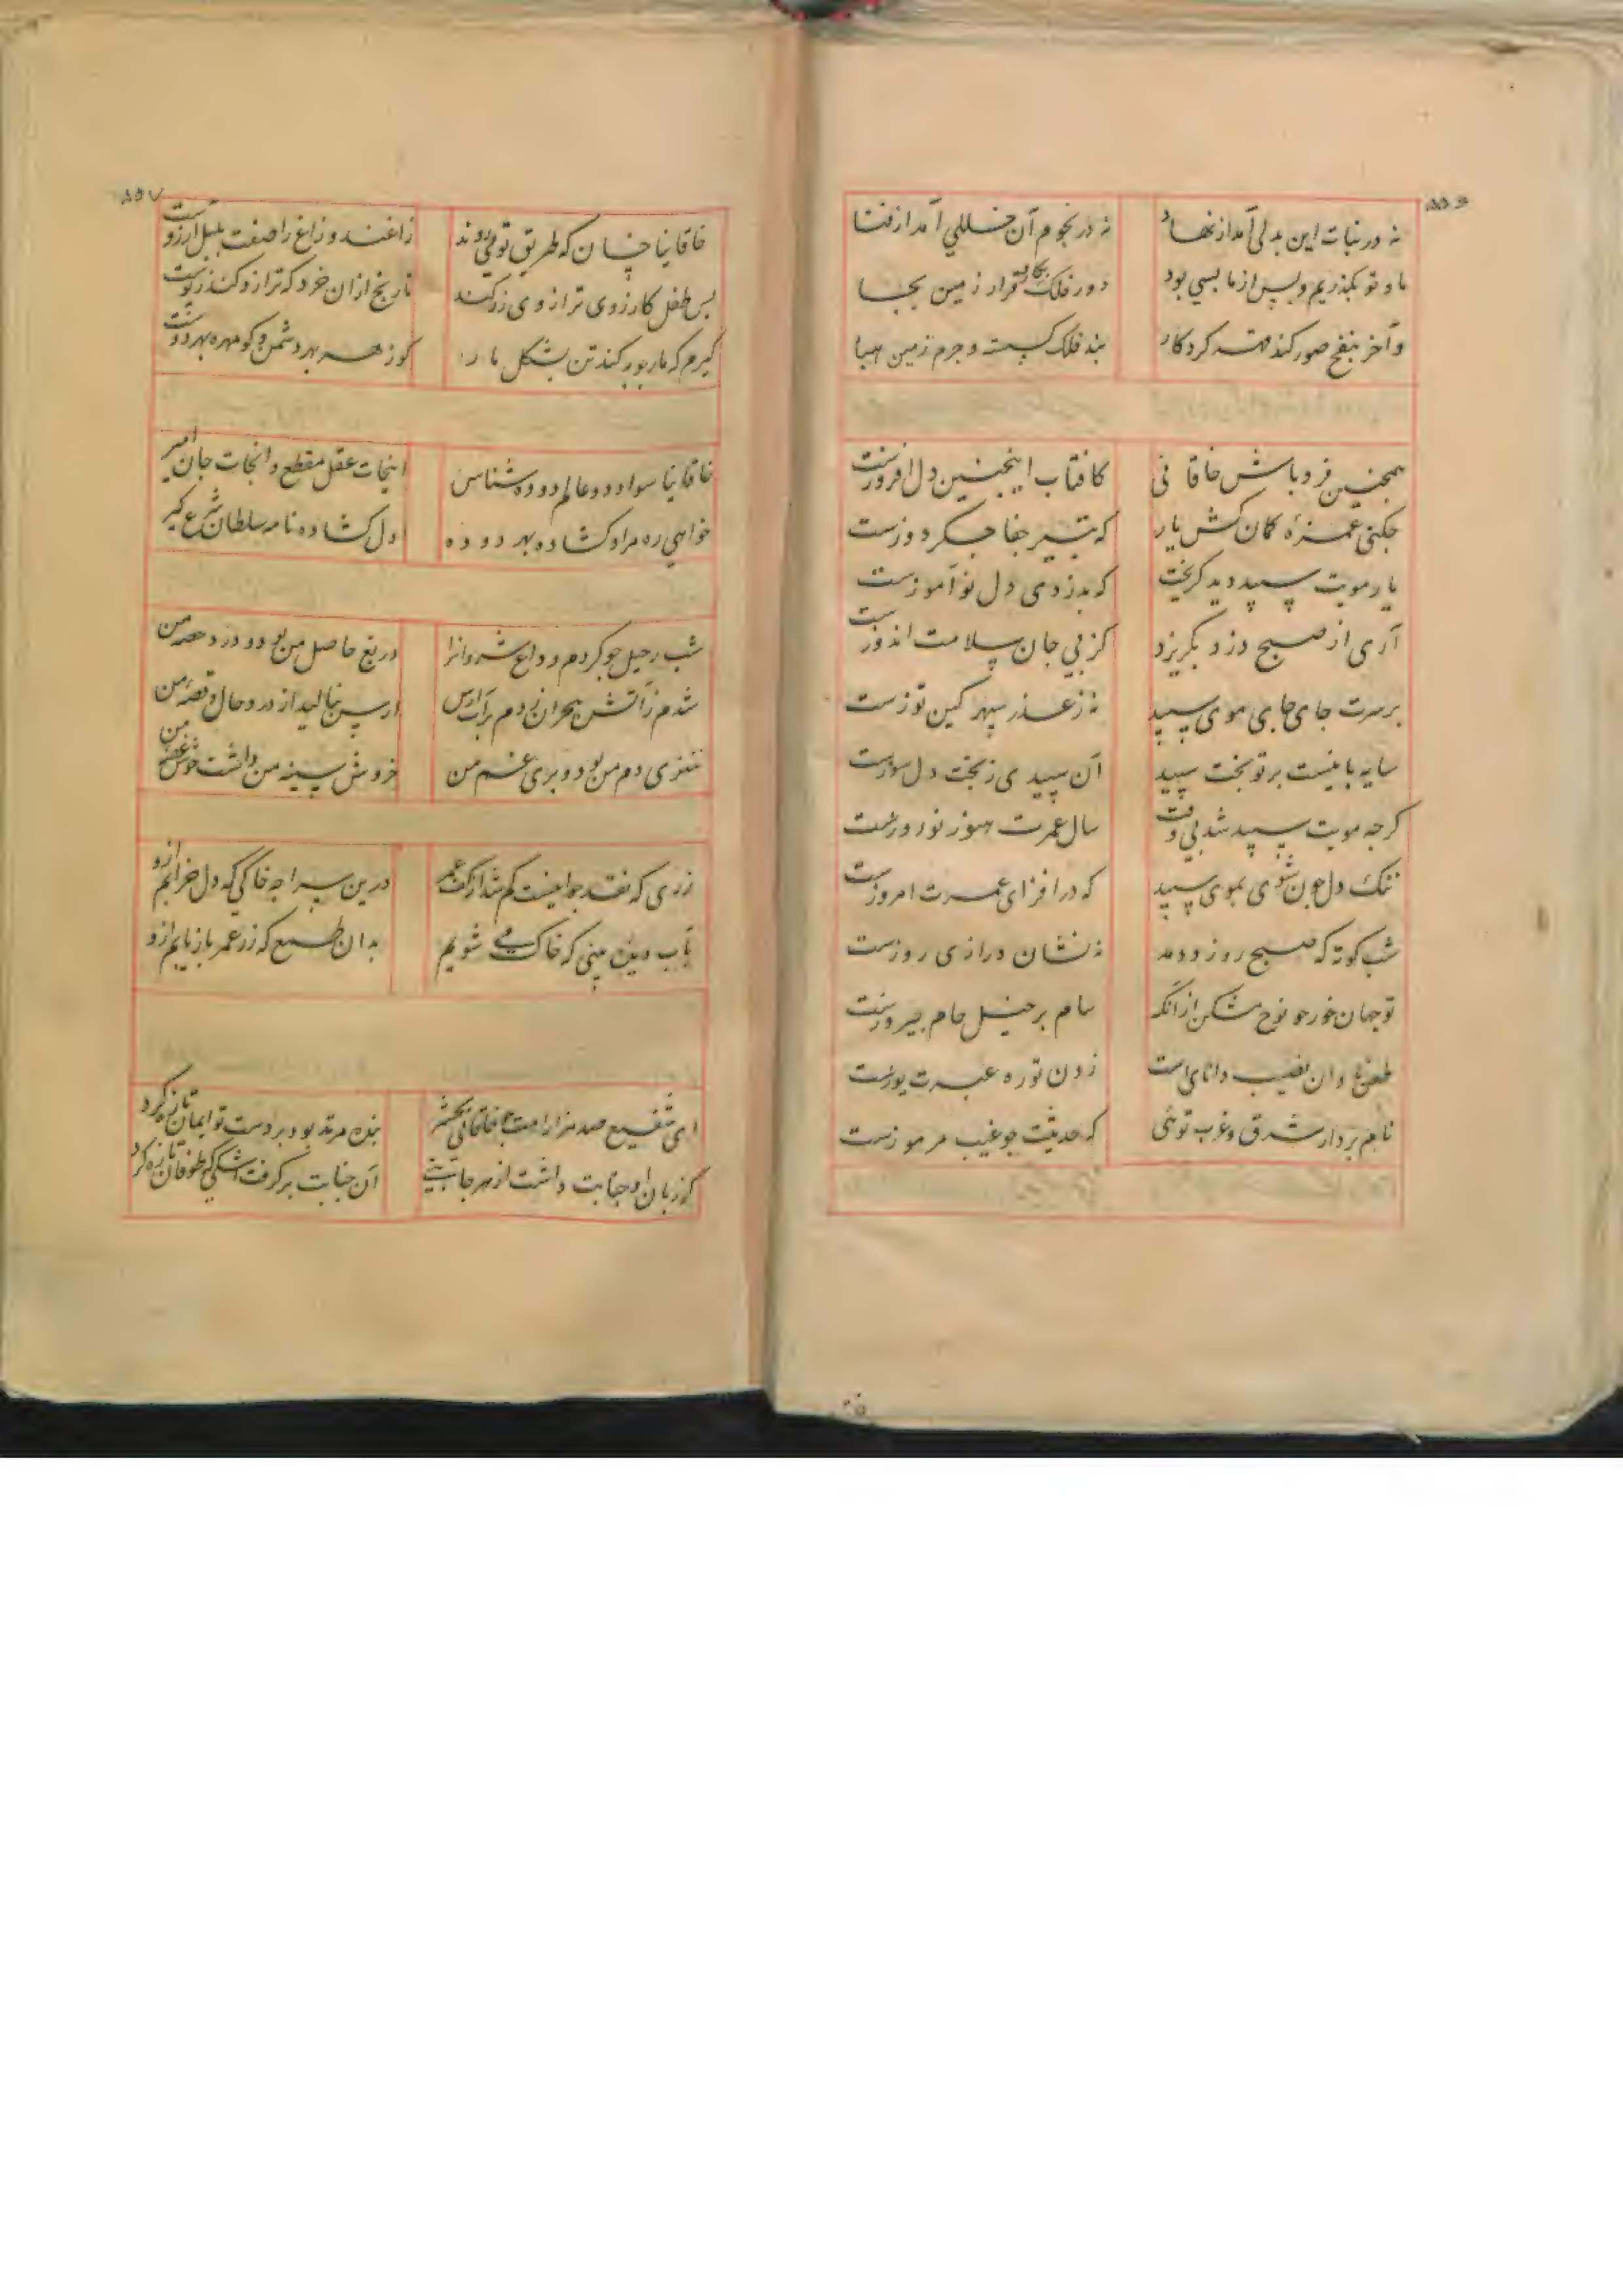 ۵۵۶
نه در نبات این بدلی آمد از نهاد نه در نجوم آن خللی آمد از فنا
ما و تو بگذریم و پس از ما بسی بود دور فلک بکار قرار زمین بجا
و آخر بنفخ صور کند قهر کردکار بند فلک کسسته و جرم زمین هبا
همچنین فرد باش خاقانی کافتاب اینچنین دل افروزست
جکنی غمزهٔ کمان کش یار که بتیر جفا جکر دوزست
یار مویت سپید دید کریخت که بدزدی دل نوآموزست
آری از صبح دزد بکریزد کز پی جان سلامت اندوزست
بر سرت جای جای موی سپید نه ز غدر سپهر کین توزست
سایه بانیست بر تو بخت سپید آن سپیدی ز بخت دل سوزست
کرجه مویت سپید شد بی وقت سال عمرت هنوز نوروزست
تنک دل جون شوی بموی سپید که در افزای عمرت امروزست
شب کوته که صبح زود دمد نه نشان درازی روزست
تو جهان خور جو نوح مشکن از آنکه سام بر خیل حام پیروزست
طعنهٔ نادان نصیب دانای است زدن توره عبرت یوزست
نام بردار شرق و غرب توئی که حدیثت جو غیب مرموزست
۵۵۷
خاقانیا خسان که طریق تو می روند زاغند و زاغ را صفت بلبل آرزوست
بس طفل کارزوی ترازوی زر کند نارنج از آن خرد که ترازو کند ز پوست
کیرم که مارجوبه کند تن بشکل مار کو زهر بهر دشمن و کو مهره بهر دوست
خاقانیا سواد دو عالم دو ده شناس اینجات عقل مقطع و آنجات جان امیر
خواهی ره مراد کشاده بهر دو ده دل کشاده نامه سلطان شرع کیر
شب رحیل جو کردم وداع شروانرا دریغ حاصل من بود و درد حصهٔ من
شدم ز آتش هجران زدم بر آب ارس ارس بنالید از درد حال و قصهٔ من
تنوری دم من بود و بر غم من خروش سینه من داشت جوش غصهٔ من
زری که نقد جوانیست کم شد از کف عمر درین سراجه خاکی که دل خرابم ازو
بآب دیده نبینی که خاک می شویم بدان طمع که زر عمر باز یابم ازو
ای شفیع صد هزار امت خاقانی ببخش بنده مرتد بود بر دست تو ایمان تازه کرد
کر زبان او جنابت داشت از هر جانبی آن جنابت بر کرفت اشکی که طوفان تازه کرد